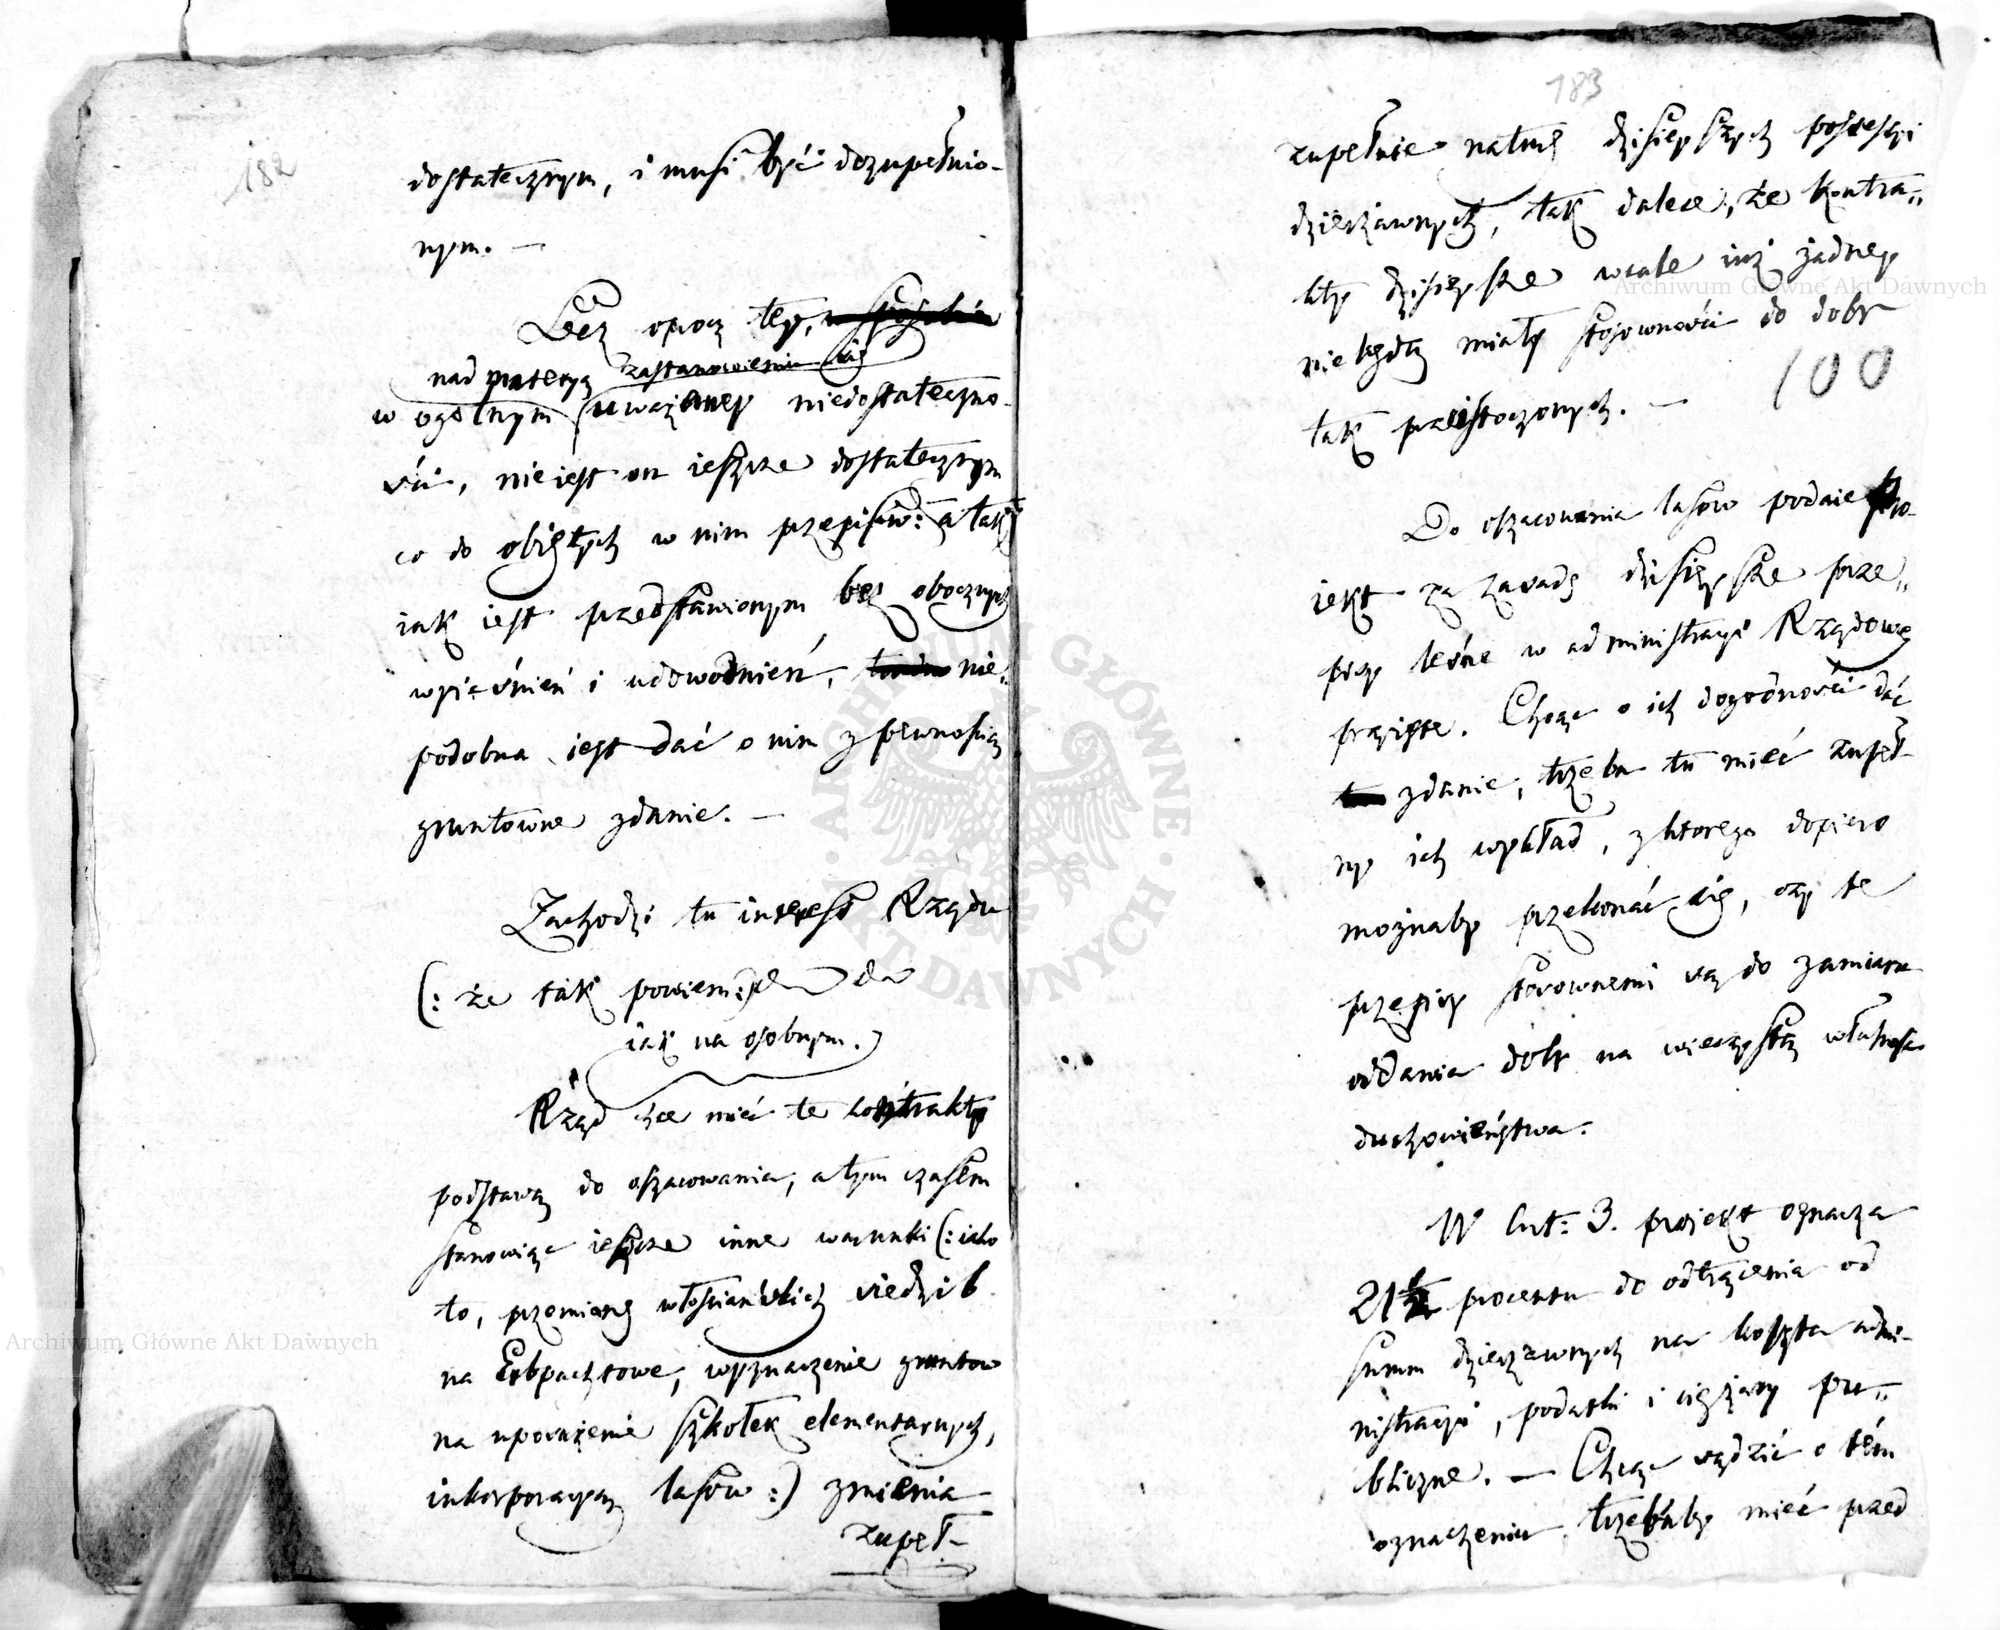 182
dostatecznym, i musi być dozupełnio-
nym. —
Lecz oprocz tey,
nad materyą zastanowienia się
w ogolnym uważaney niedostateczno-
ści, nie iest on ieszcze dostatecznym
co do obiętych w nim przepisow: a tak
iak iest przedstawionym bez obocznych
wyiaśnień i udowodnień, nie-
podobna iest dać o nim z pewnością
gruntowne zdanie. —
Zachodzi tu interess Rządu
(: że tak powiem:)
iak na osobnym.
Rząd chce mieć te kontrakty
podstawą do oszacowania, a tym czasem
stanowiąc ieszcze inne warunki (: iako
to, przemianę włościańskich siedzib
na Erbpachtowe, wyznaczenie gruntow
na uposażenie szkołek elementarnych,
inkorporacyą lasow :) zmienia
zupeł-
183
zupełnie naturę dzisieyszych possessyi
dzierżawnych, tak dalece, że kontra-
kty dzisieysze wcale iuż żadney
nie będą miały stosowności do dobr
100
tak przeistoczonych. —
Do oszacowania lasow podaie Pro-
iekt za zasadę dzisieysze prze-
pisy leśne w administracyi Rządowey
przyięte. Chcąc o ich dogodności dać
zdanie, trzeba tu mieć zupeł-
ny ich wykład, z ktorego dopiero
możnaby przekonać się, czy te
przepisy stosownemi są do zamiaru
oddania dobr na wieczystą własność
duchowieństwa.
W Art: 3. projekt oznacza
21½ procentu do odtrącenia od
summ dzierżawnych na koszta admi-
nistracyi, podatki i ciężary pu-
bliczne. — Chcąc sądzić o tém
oznaczeniu trzebaby mieć przed
Archiwum Główne Akt Dawnych
Archiwum Główne Akt Dawnych
ARCHIWUM GŁÓWNE AKT DAWNYCH